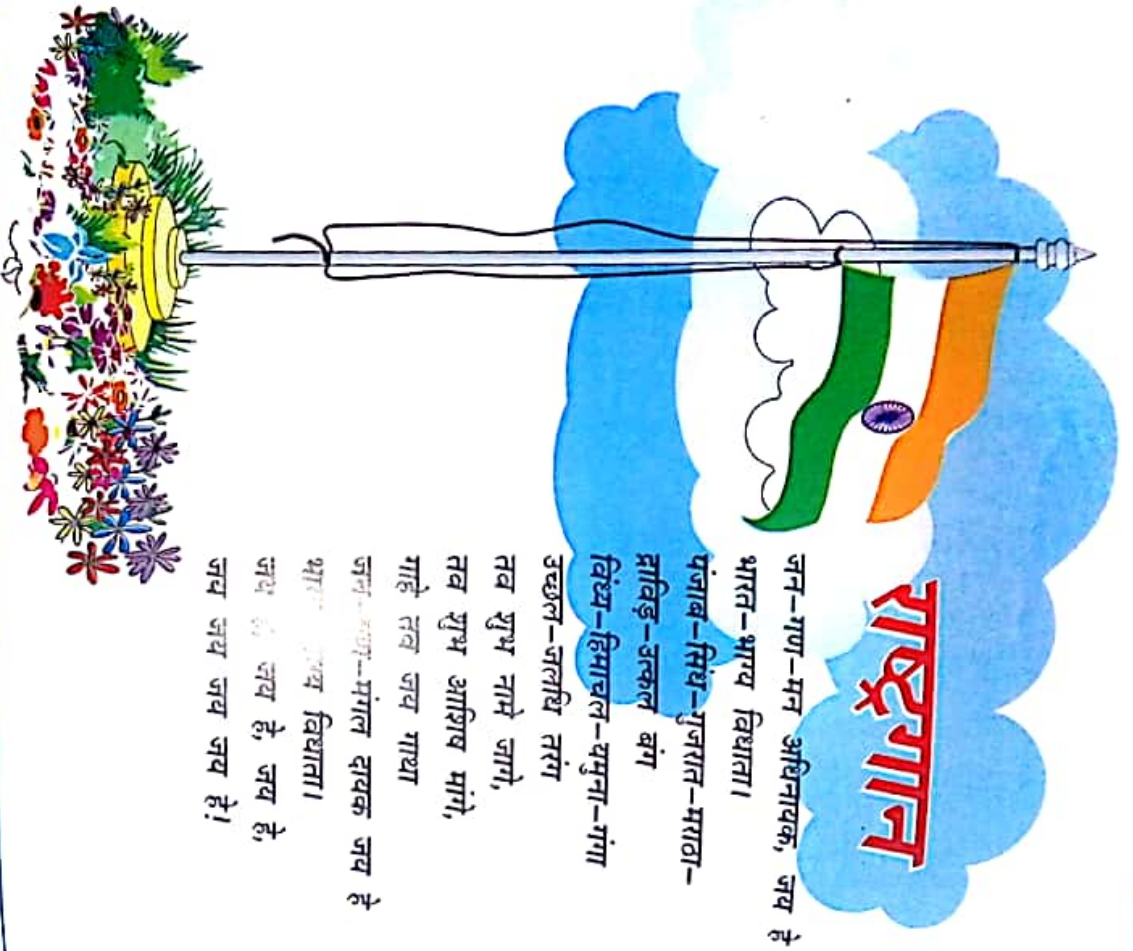 राष्ट्रगान
जन-गण-मन अधिनायक, जय हे
भारत-भाग्य विधाता।
पंजाब-सिंध-गुजरात-मराठा-
द्राविड़-उत्कल बंग
विंध्य-हिमाचल-यमुना-गंगा
उच्छल-जलधि तरंग
तव शुभ नामे जागे,
तव शुभ आशिष मांगे,
गाहे तव जय गाथा
जन-गण-मंगल दायक जय हे
विधाता।
जय हे, जय हे, जय हे,
जय जय जय जय हे!